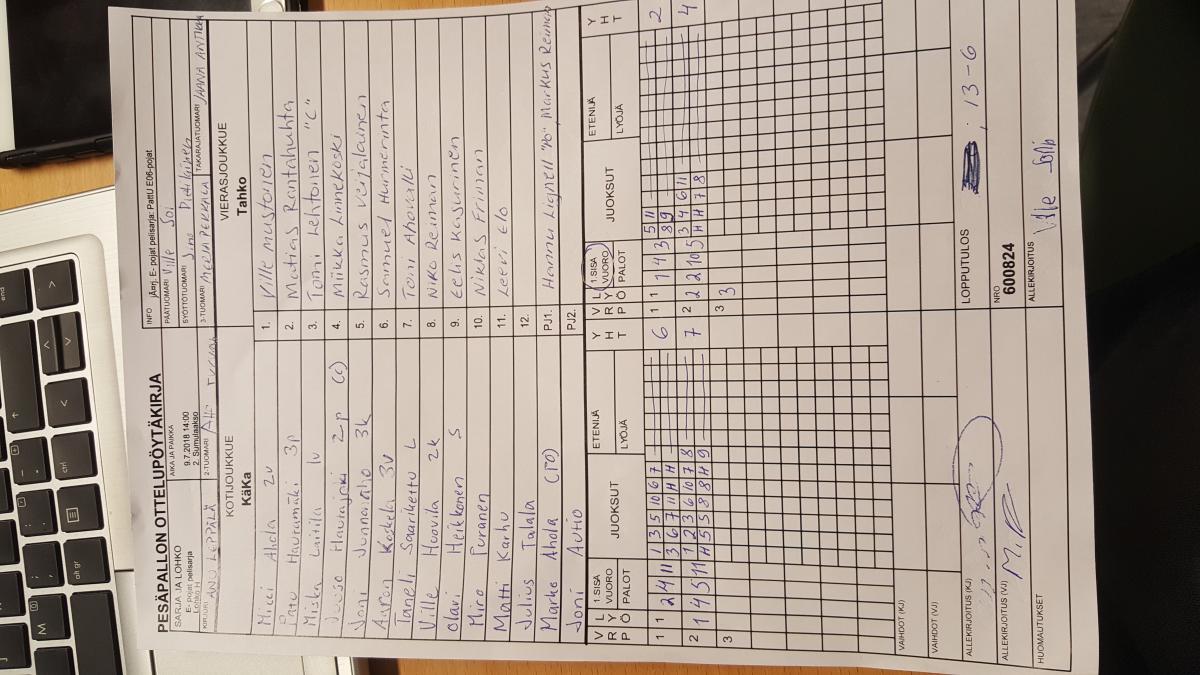 PESÄPALLON OTTELUPÖYTÄKIRJA
SARJA JA LOHKO
E- pojat pelisarja
Lohko H
AIKA JA PAIKKA
9.7.2018 14:00
2. Sumulaakso
INFO jÄrrj. E- pojat pelisarja: PattU E06-pojat
PÄÄTUOMARI Ville Soi
SYÖTTÖTUOMARI
KIRJURI ANU LEPPÄLÄ
2-TUOMARI
3-TUOMARI MEERI PEKKALA
TAKARAJATUOMARI JAANA ANTTILA
KOTIJOUKKUE
KäKa
VIERASJOUKKUE
Tahko
Micci Ahola 2v
1. Ville Mustonen
Patu Hautamäki 3p
2. Matias Rantahuhta
Miska Laitila 1v
3. Tomi Lehtonen "C"
2p (c)
4. Miikka Linnekoski
Joni 3k
5. Rasmus Virjalainen
Aaron Koskela 3v
6. Samuel Hurmerinta
Taneli Saariketto L
7. Toni Ahovalli
Ville Huovila 2k
8. Niko Reiman
Olavi Heikkonen S
9. Eelis Kasurinen
Miro Turanen
10. Niklas Friman
Matti Karhu
11. Leevi Elo
Julius Talala
12.
Marke Ahola (TO)
PJ1. Hannu Lignell "No", Markus Reiman
Joni Autio
PJ2.
VRP
LYÖ
1.SISÄ
VUORO
PALOT
JUOKSUT
ETENIJÄ
LYÖJÄ
YHT
VRP
LYÖ
1.SISÄ
VUORO
PALOT
JUOKSUT
ETENIJÄ
LYÖJÄ
YHT
1 1 2 4 11
1 3 5 10 6 7
3 6 7 11 H H
6
1 1 4 3
5 11
8 9
2
2 1 4 5 11
1 2 3 6 10 7 8
H 5 5 8 8 H 9
7
2 2 2 10 5
3 4 6 11
H H 7 8
4
3
3 3
VAIHDOT (KJ)
VAIHDOT (VJ)
LOPPUTULOS
13-6
ALLEKIRJOITUS (KJ)
ALLEKIRJOITUS (VJ)
NRO
600824
HUOMAUTUKSET
ALLEKIRJOITUS
Ville Soi
end
alt gr
ctrl
M